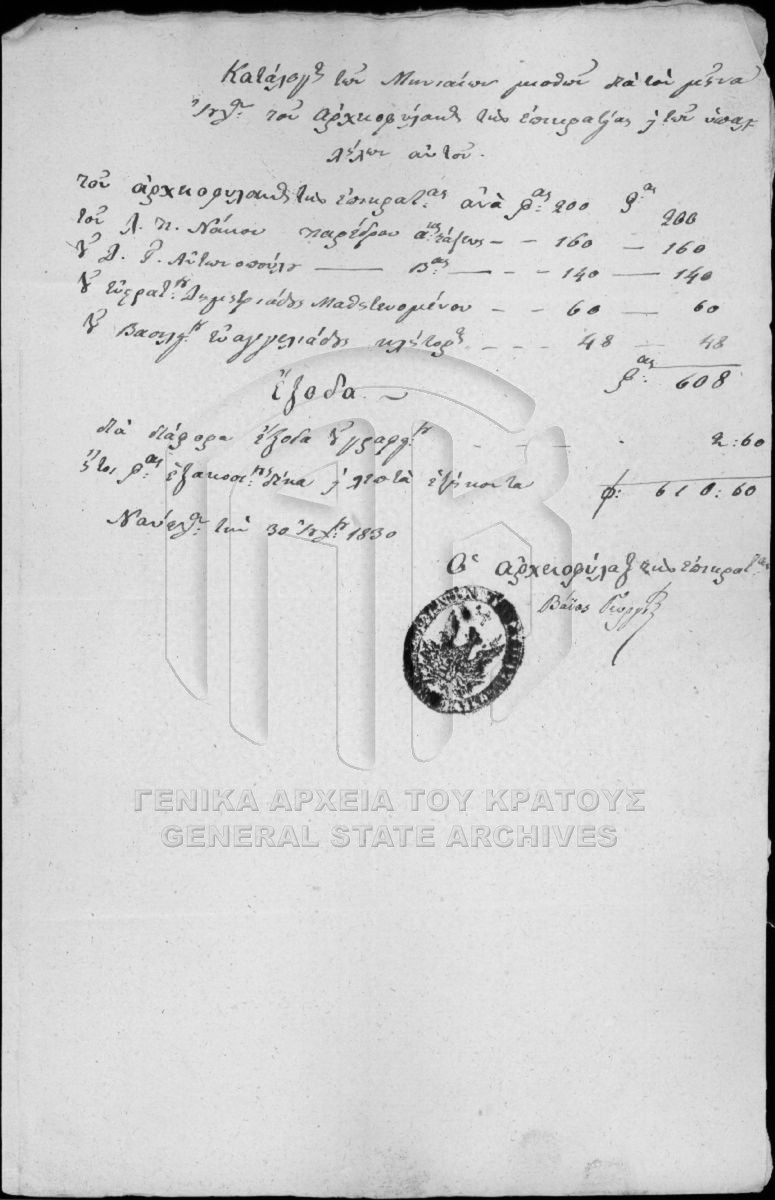 Κατάλογος τῶν Μηνιαίων μισθῶν διὰ τὸν μῆνα
τοῦ ἀρχειοφύλακος τῆς ἐπικρατείας ἢ τῶν ὑπαλ-
λήλων αὐτοῦ.
τοῦ ἀρχειοφύλακος τῆς ἐπικρατ:ας ἀνὰ φ:ας 200 φ:ας 200
τοῦ Α. Π. Νάκου παρέδρου α:ης τάξεως - - 160 — 160
Β:ας - - 140 — 140
Δημητριάδης Μαθητευομένου - - 60 — 60
Βασιλ: Εὐαγγελιάδης κλήτορος - - - 48 — 48
φ:ας 608
Ἔξοδα
διὰ διάφορα ἔξοδα 2:60
ἤτοι φ:ας ἑξακοσί: δέκα ἢ λεπτὰ ἑξήκοντα φ: 610:60
Ναύπλ: τὴν 30 1830
Ὁ ἀρχειοφύλαξ τῆς ἐπικρατ:
ΓΕΝΙΚΑ ΑΡΧΕΙΑ ΤΟΥ ΚΡΑΤΟΥΣ
GENERAL STATE ARCHIVES